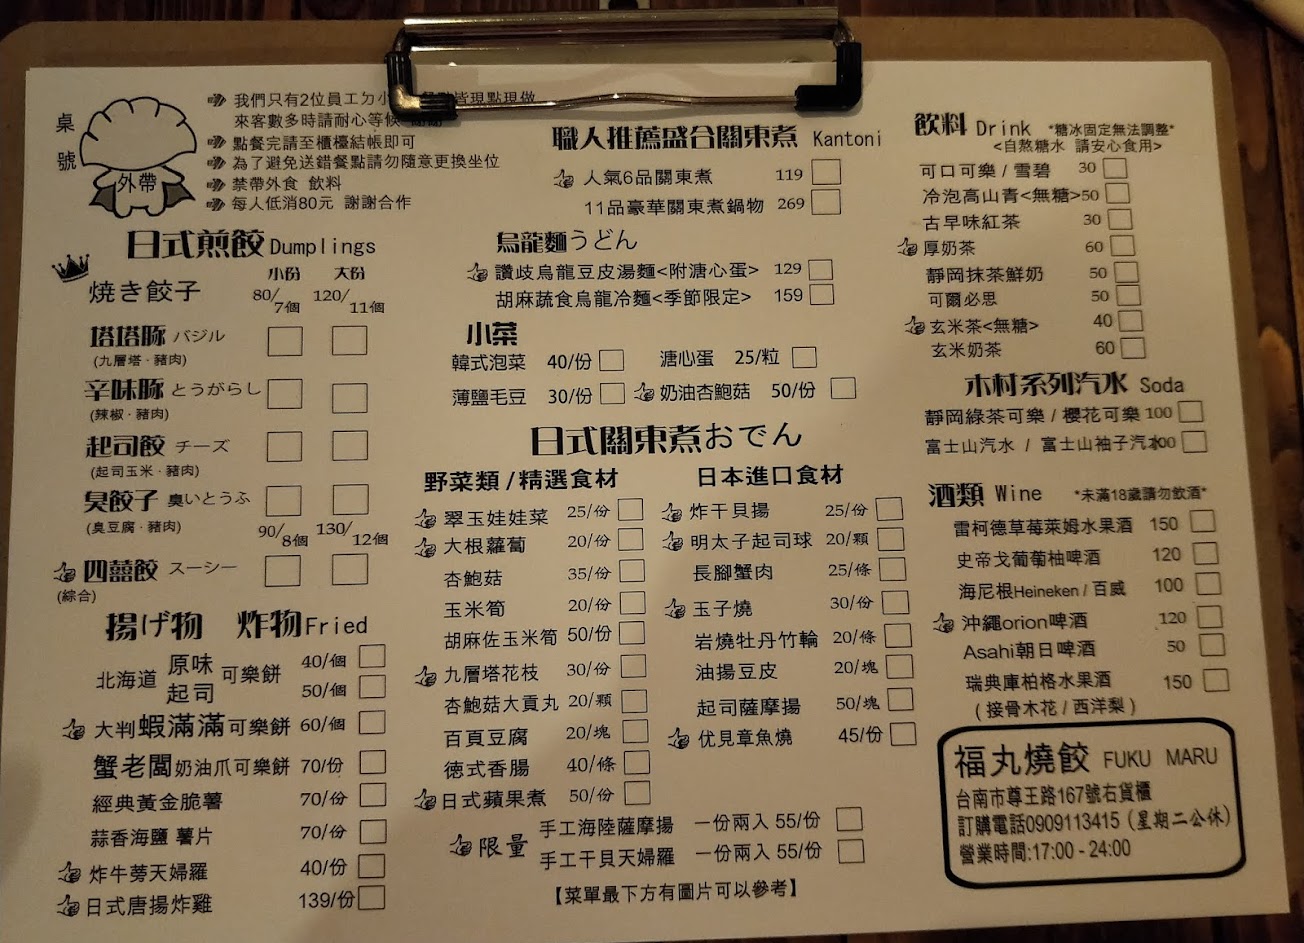 桌
號
外帶
我們只有2位員工
皆現點現做
來客數多時請耐心等候
點餐完請至櫃檯結帳即可
為了避免送錯餐點請勿隨意更換坐位
禁帶外食 飲料
每人低消80元 謝謝合作
日式煎餃 Dumplings
小份 大份
焼き餃子 80/7個 120/11個
塔塔豚 バジル
(九層塔·豬肉)
辛味豚 とうがらし
(辣椒·豬肉)
起司餃 チーズ
(起司玉米·豬肉)
臭餃子 臭いとうふ
(臭豆腐·豬肉)
90/8個 130/12個
四囍餃 スーシー
(綜合)
揚げ物 炸物 Fried
北海道 原味 可樂餅 40/個
起司 50/個
大判蝦滿滿可樂餅 60/個
蟹老闆奶油爪可樂餅 70/份
經典黃金脆薯 70/份
蒜香海鹽 薯片 70/份
炸牛蒡天婦羅 40/份
日式唐揚炸雞 139/份
職人推薦盛合關東煮 Kantoni
人氣6品關東煮 119
11品豪華關東煮鍋物 269
烏龍麵うどん
讚歧烏龍豆皮湯麵<附溏心蛋> 129
胡麻蔬食烏龍冷麵<季節限定> 159
小菜
韓式泡菜 40/份 溏心蛋 25/粒
薄鹽毛豆 30/份 奶油杏鮑菇 50/份
日式關東煮おでん
野菜類/精選食材
翠玉娃娃菜 25/份
大根蘿蔔 20/份
杏鮑菇 35/份
玉米筍 20/份
胡麻佐玉米筍 50/份
九層塔花枝 30/份
杏鮑菇大貢丸 20/顆
百頁豆腐 20/塊
德式香腸 40/條
日式蘋果煮 50/份
日本進口食材
炸干貝揚 25/份
明太子起司球 20/顆
長腳蟹肉 25/條
玉子燒 30/份
岩燒牡丹竹輪 20/條
油揚豆皮 20/塊
起司薩摩揚 50/塊
伏見章魚燒 45/份
限量 手工海陸薩摩揚 一份兩入 55/份
手工干貝天婦羅 一份兩入 55/份
【菜單最下方有圖片可以參考】
飲料 Drink *糖冰固定無法調整*
<自熬糖水 請安心食用>
可口可樂/雪碧 30
冷泡高山青<無糖> 50
古早味紅茶 30
厚奶茶 60
靜岡抹茶鮮奶 50
可爾必思 50
玄米茶<無糖> 40
玄米奶茶 60
木村系列汽水 Soda
靜岡綠茶可樂/櫻花可樂 100
富士山汽水 / 富士山柚子汽水 100
酒類 Wine *未滿18歲請勿飲酒*
雷柯德草莓萊姆水果酒 150
史帝戈葡萄柚啤酒 120
海尼根Heineken/百威 100
沖繩orion啤酒 120
Asahi朝日啤酒 50
瑞典庫柏格水果酒 150
(接骨木花/西洋梨)
福丸燒餃 FUKU MARU
台南市尊王路167號右貨櫃
訂購電話0909113415 (星期二公休)
營業時間:17:00 - 24:00